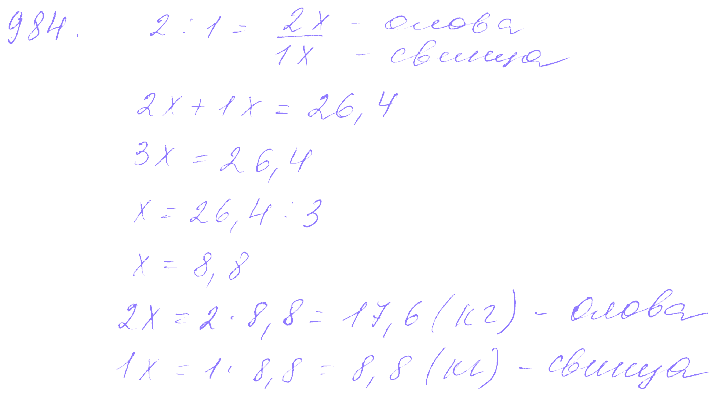 984. 2 : 1 = 2x/1x - олова - свинца
2x + 1x = 26,4
3x = 26,4
x = 26,4 : 3
x = 8,8
2x = 2 · 8,8 = 17,6 (кг) - олова
1x = 1 · 8,8 = 8,8 (кг) - свинца